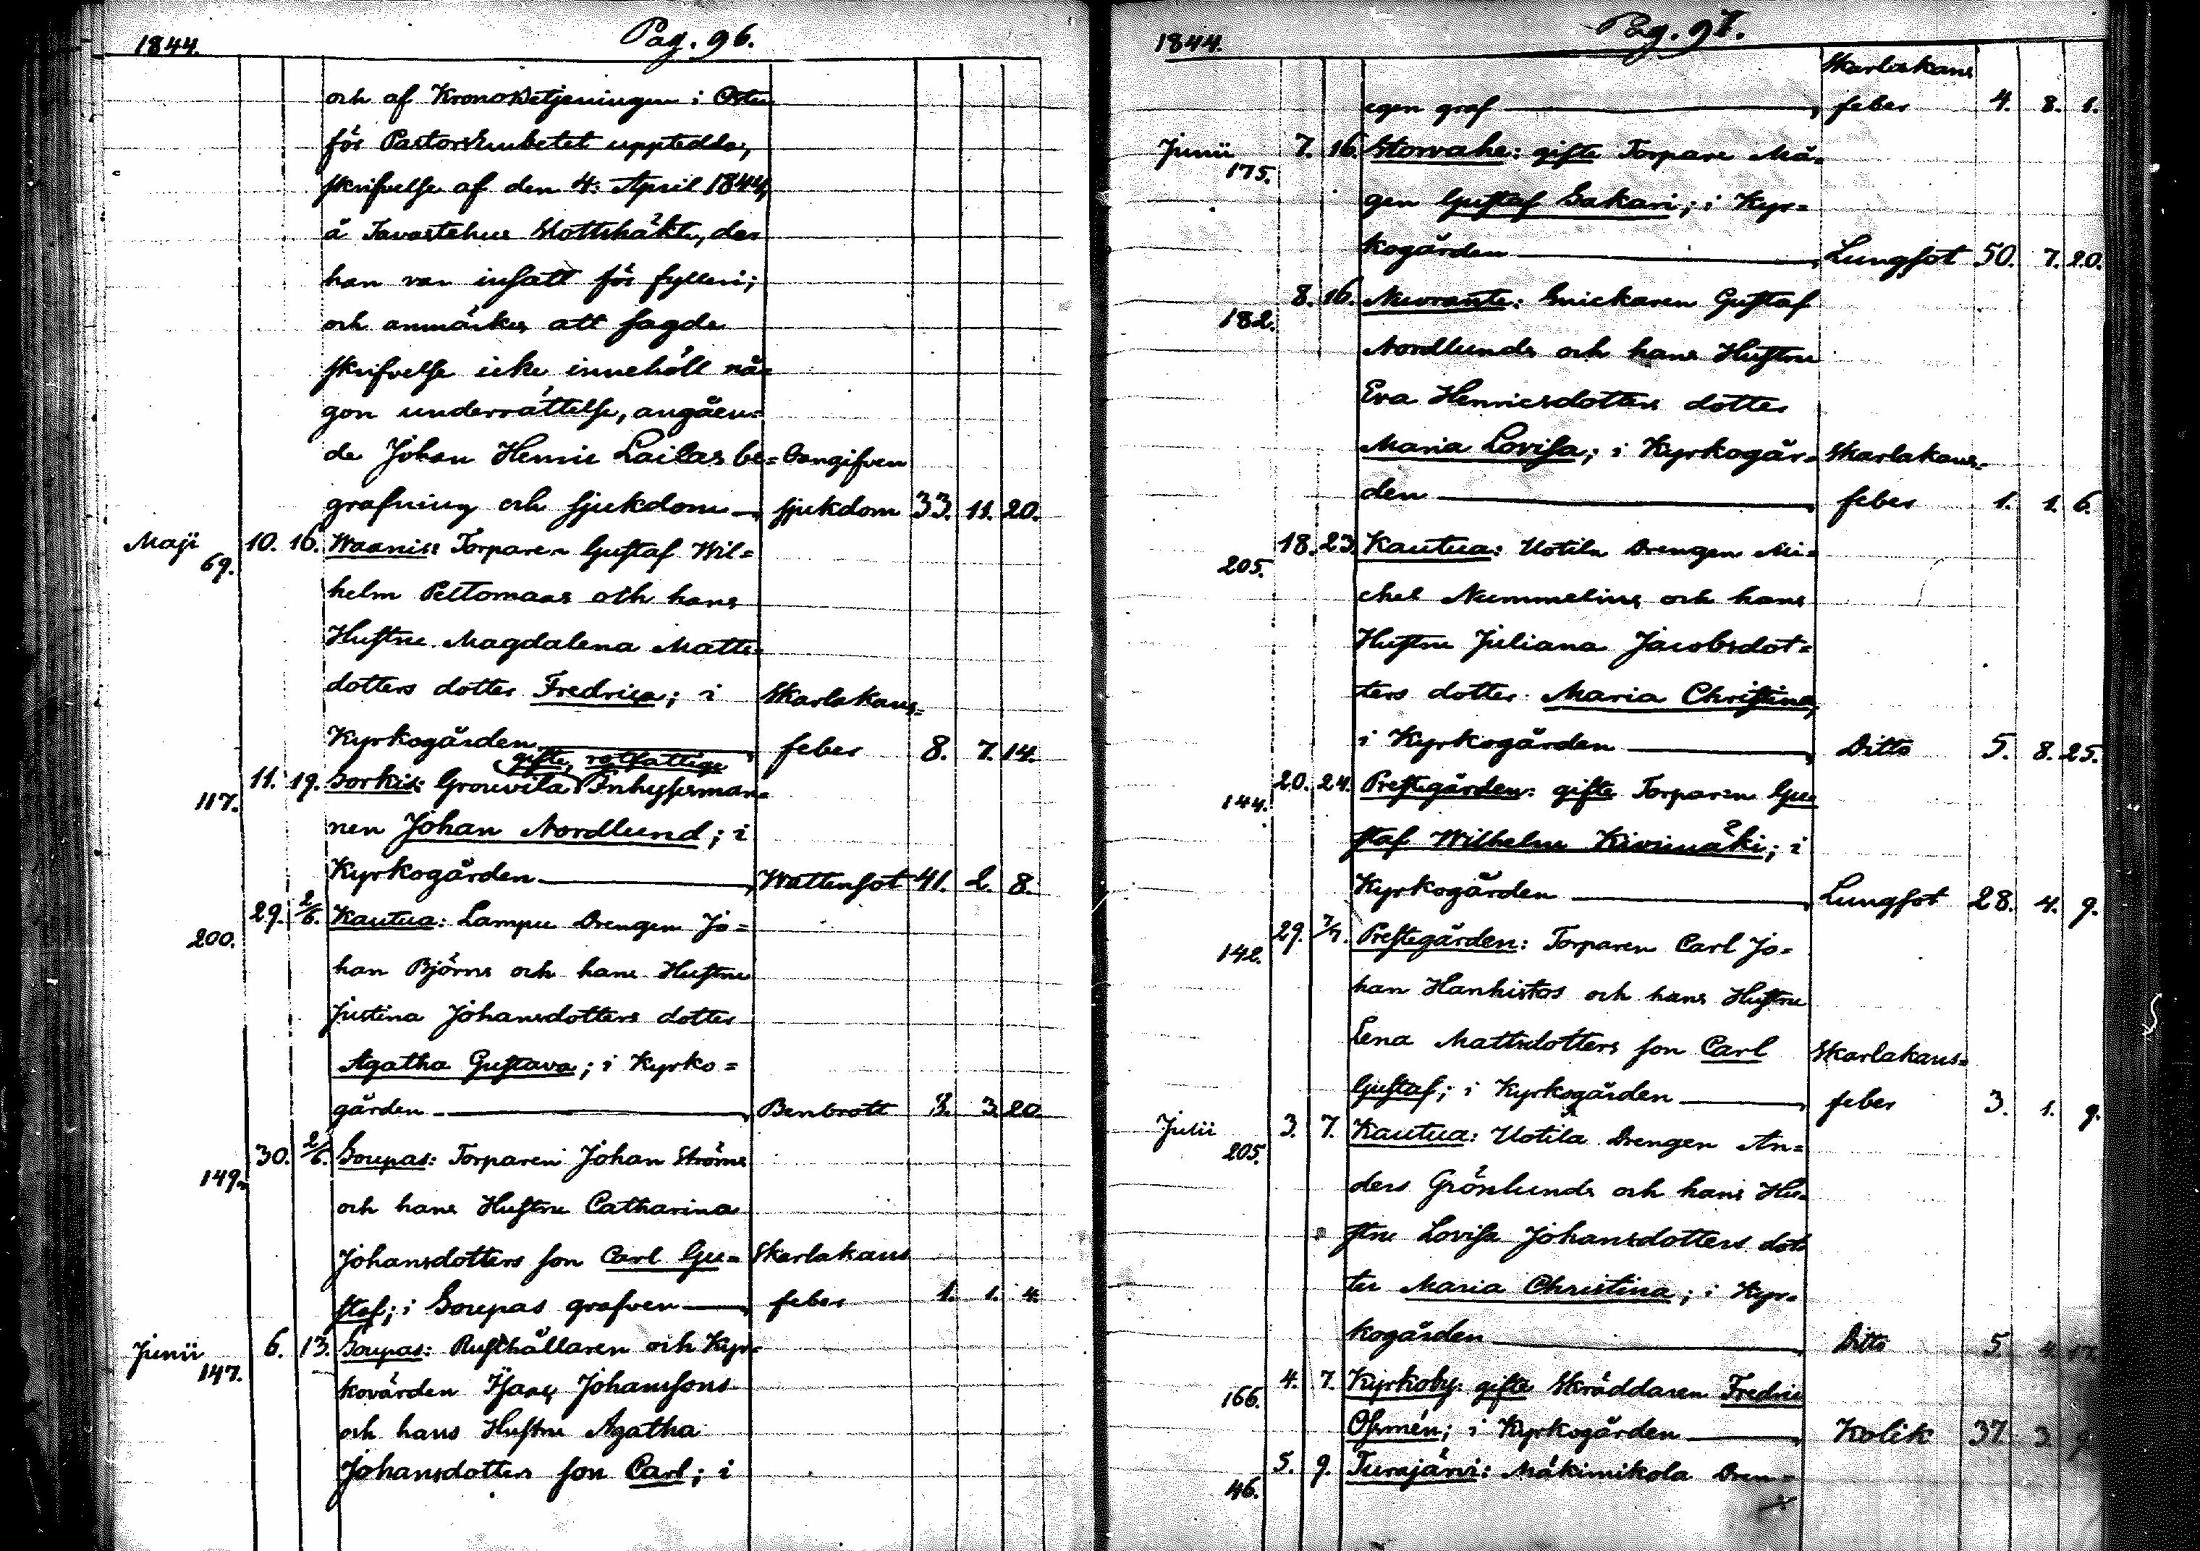 1844. Pag. 96.
och af Kronobetjeningen i
för Pastorsembetet uppteddes,
skrifvelse af den 4: April 1844,
å Tavastehus Slottshäkte, der
han var insatt för fylleri;
och anmärkes att sagde
skrifvelse icke innehöll nå=
gon underrättelse, angåen=
de Johan Henric Lailas be= Oangifven
grafning och sjukdom — sjukdom 33. 11. 20.
Maji 69. 10. 16. Waanis: Torparen Gustaf Wil=
helm Peltomaas och hans
Hustru Magdalena Matts
dotters dotter Fredrica; i Skarlakans=
Kyrkogården — feber 8. 7. 14.
gifte, rotfattige
117. 11. 19. Sorkis: Grouvila Inhysesman=
nen Johan Nordlund; i
Kyrkogården — Wattensot 41. 2. 8.
200. 29. 2/6. Kautua: Lampu Drengen Jo=
han Björns och hans Hustru
Justina Johansdotters dotter
Agatha Gustava; i Kyrko=
gården — Benbrott 3. 20.
149. 30. 2/6. Soupas: Torparen Johan Ströms
och hans Hustru Catharina
Johansdotters son Carl Gu= Skarlakans
staf; i Soupas grafven — feber 1. 1. 4.
Junii 147. 6. 13. Soupas: Rusthållaren och Kyr=
kovärden Isaac Johanssons
och hans Hustru Agatha
Johansdotters son Carl; i
1844. Pag. 97.
Skarlakans
egen graf — feber 4. 8. 1.
Junii 175. 7. 16. Storvahe: gifte Torpare Må=
gen Gustaf Sakari; i Kyr=
kogården — Lungsot 50. 7. 20.
182. 8. 16. Neuvrante: Snickaren Gustaf
Nordlunds och hans Hustru
Eva Henricsdotters dotter
Maria Lovisa; i Kyrkogår= Skarlakans=
den — feber 1. 1. 6.
205. 18. 23. Kautua: Uotila Drengen Mi=
chel Nummelins och hans
Hustru Juliana Jacobsdot=
ters dotter Maria Christina;
i Kyrkogården — Ditto 5. 8. 25.
144. 20. 24. Prestegården: gifte Torparen Gu
staf Wilhelm Kivimäki; i
Kyrkogården — Lungsot 28. 4. 9.
142. 29. 7/7. Prestegården: Torparen Carl Jo=
han Hanhistos och hans Hustru
Lena Mattsdotters son Carl Skarlakans=
Gustaf; i Kyrkogården — feber 3. 1. 9.
Julii 205. 3. 7. Kautua: Uotila Drengen An=
ders Grönlunds och hans Hu=
stru Lovisa Johansdotters dot
ter Maria Christina; i Kyr=
kogården — Ditto 5.
166. 4. 7. Kyrkoby: gifte Skräddaren Fredric
Osmén; i Kyrkogården — Kolik 37. 3. 9.
46. 5. 9. Turajärvi: Mäkimikola Dren=